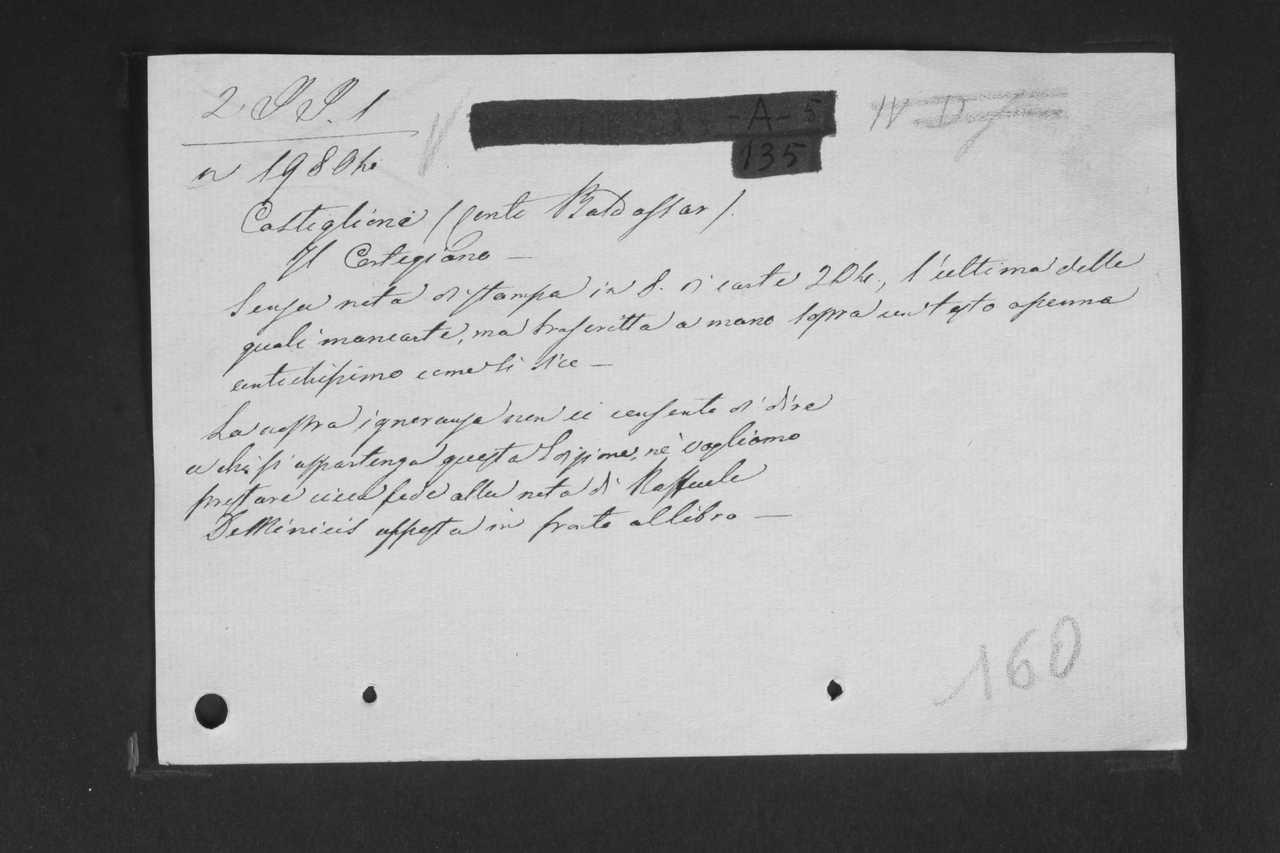 2. P P. 1
-A- 5
135
IV
n 19804
Castiglione (conte Baldassar).
Il Cortegiano —
Senza nota di stampa in 8. di carte 204., l'ultima delle
quali mancante, ma trascritta a mano sopra un testo a penna
antichissimo come si dice —
La nostra ignoranza non ci consente di dire
a chi si appartenga questa edizione, nè vogliamo
prestare cieca fede alla nota di Raffaele
De Minicis apposta in fronte al libro —
160